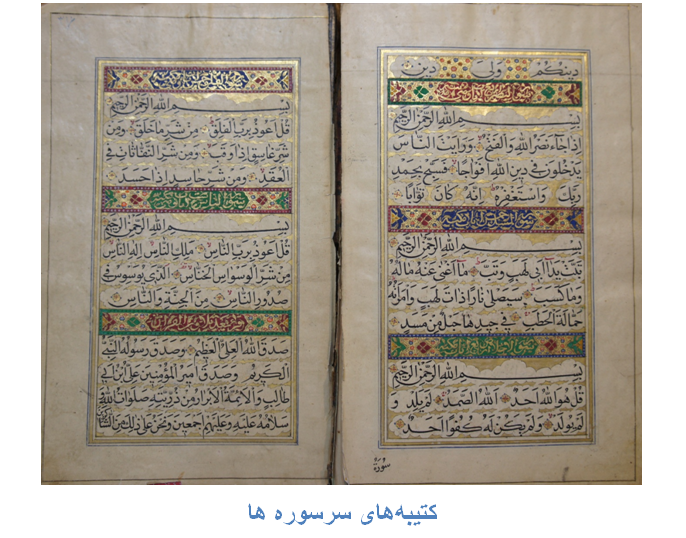 دینکم ولی دین
بسم الله الرحمن الرحیم
اذا جاء نصر الله والفتح ورایت الناس
یدخلون فی دین الله افواجا فسبح بحمد
ربک واستغفره انه کان توابا
بسم الله الرحمن الرحیم
تبت یدا ابی لهب وتب ما اغنی عنه ماله
وما کسب سیصلی نارا ذات لهب وامراته
حمالة الحطب فی جیدها حبل من مسد
بسم الله الرحمن الرحیم
قل هو الله احد الله الصمد لم یلد و
لم یولد ولم یکن له کفوا احد
سورة
سورة الفلق
بسم الله الرحمن الرحیم
قل اعوذ برب الفلق من شر ما خلق ومن
شر غاسق اذا وقب ومن شر النفاثات فی
العقد ومن شر حاسد اذا حسد
سورة الناس
بسم الله الرحمن الرحیم
قل اعوذ برب الناس ملک الناس اله الناس
من شر الوسواس الخناس الذی یوسوس فی
صدور الناس من الجنة والناس
صدق الله العلی العظیم وصدق رسوله النبی
الکریم وصدق امیر المؤمنین علی ابن ابی
طالب والائمة الابرار من ذریته صلوات الله و
سلامه علیه وعلیهم اجمعین ونحن علی ذلک من الشاهدین
کتیبه‌های سرسوره ها